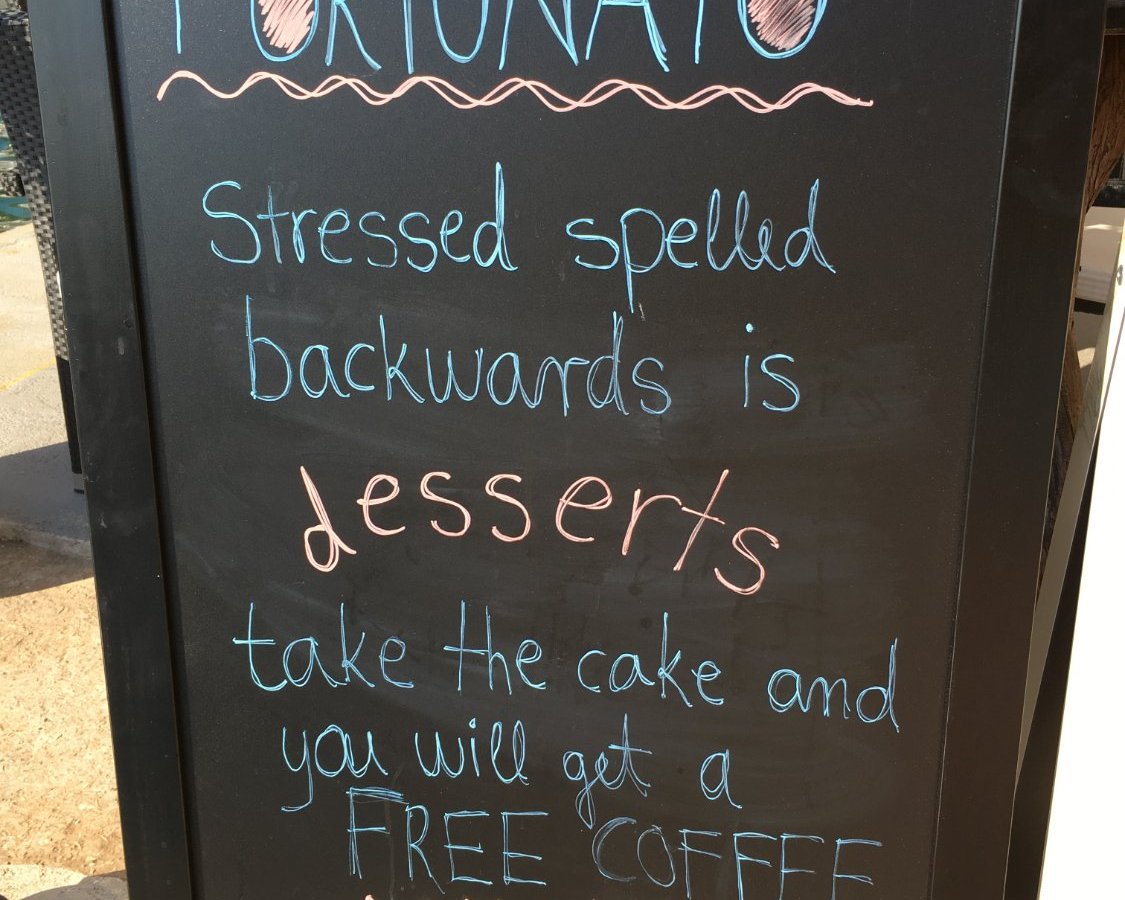 FORTUNATO
Stressed spelled
backwards is
desserts
take the cake and
you will get a
FREE COFFEE